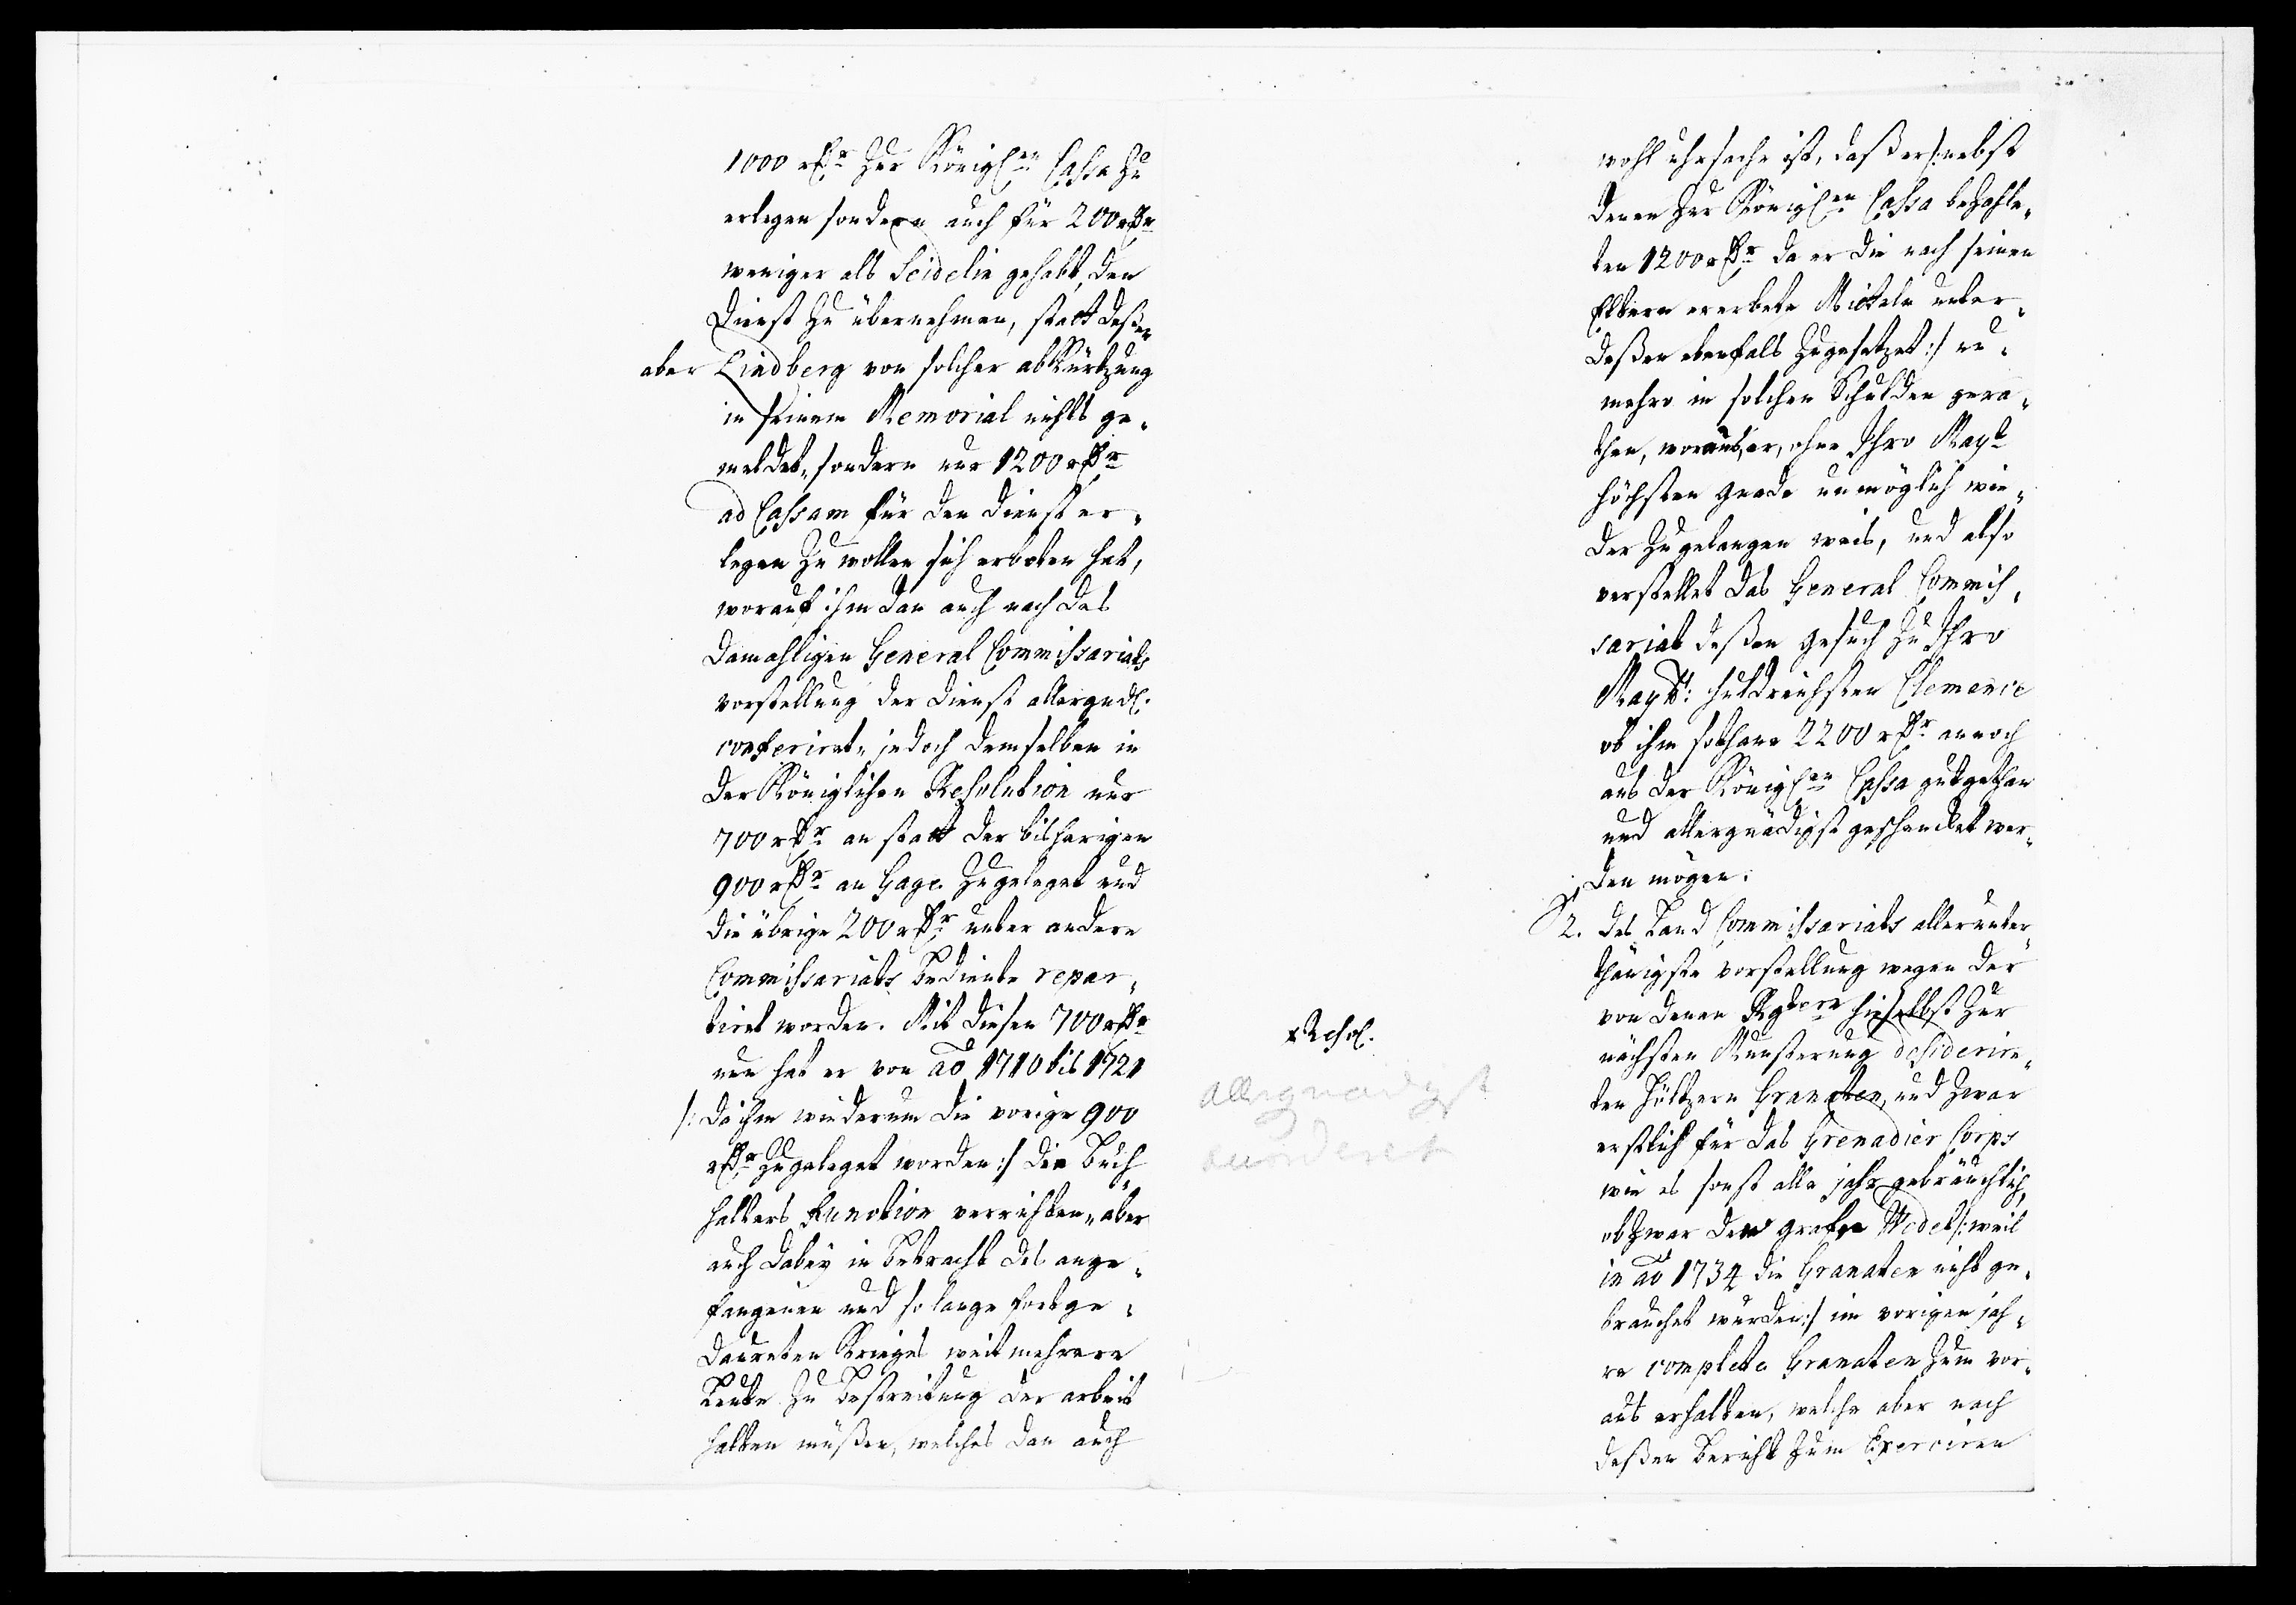 1000 rdr zur Königlen Cassa zu
erlegen sondern auch für 200 rdr
weniger als Seidelin gehabt, den
Dienst zu übernehmen, statt deßen
aber Lindberg von solcher abkürtzung
in seinem Memorial nichts ge-
meldet, sondern nur 1200 rdr
ad Cassam für den dienst er-
legen zu wollen sich erboten hat,
worauf ihm dan auch nach des
damahligen General Commissariats
vorstellung der dienst allergndl.
conferiret, jedoch demselben in
der Königlichen Resolution nur
700 rdr an statt der bisherigen
900 rdr an Gage zugeleget und
die übrige 200 rdr unter andere
Commissariats bediente repar-
tiret worden. Mit diesen 700 rdr
nun hat er von ao 1710 bis 1721
/: da ihm wiederum die vorige 900
rdr zugeleget worden :/ die Buch-
halters Function verrichten, aber
auch dabey in betracht des ange-
fangenen und so lange fortge-
daureten Krieges weit mehrere
Leute zu bestreitung der arbeit
halten müßen, welches dan auch
xResol.
allergnädigst
accorderet
wohl uhrsache ist, daß er /: nebst
denen zur Königlen Cassa bezahle-
ten 1200 rdr da er die nach seinen
Eltern ererbete Mittele unter-
deßen ebenfals zugesetzet :/ nu-
mehro in solchen Schulden gera-
then, woraus er, ohne Ihro Mayt
höchsten gnade unmöglich wie-
der zugelangen weis, und also
verstellet das General Commis-
sariat deßen gesuch zu Ihro
Maytt: huldreichsten Clemence
ob ihm sothane 2200 rdr annoch
aus der Königlen Cassa gutgethan
und allergnädigst geschencket wer-
den mögen.
2. des Land Commissariats allerunter-
thänigste vorstellung wegen der
von denen Rgtern hieselbst zur
nächsten Munsterung desiderire-
ten höltzern Granaten, und zwar
erstlich für das Grenadier Corps
wie es sonst alle jahr gebräuchlich,
obzwar der grafe Wedel /: weil
in ao 1734 die Granaten nicht ge-
brauchet wurden :/ im vorigen jah-
re complete Granaten zum vor-
aus erhalten, welche aber nach
deßen bericht zum Exerciren